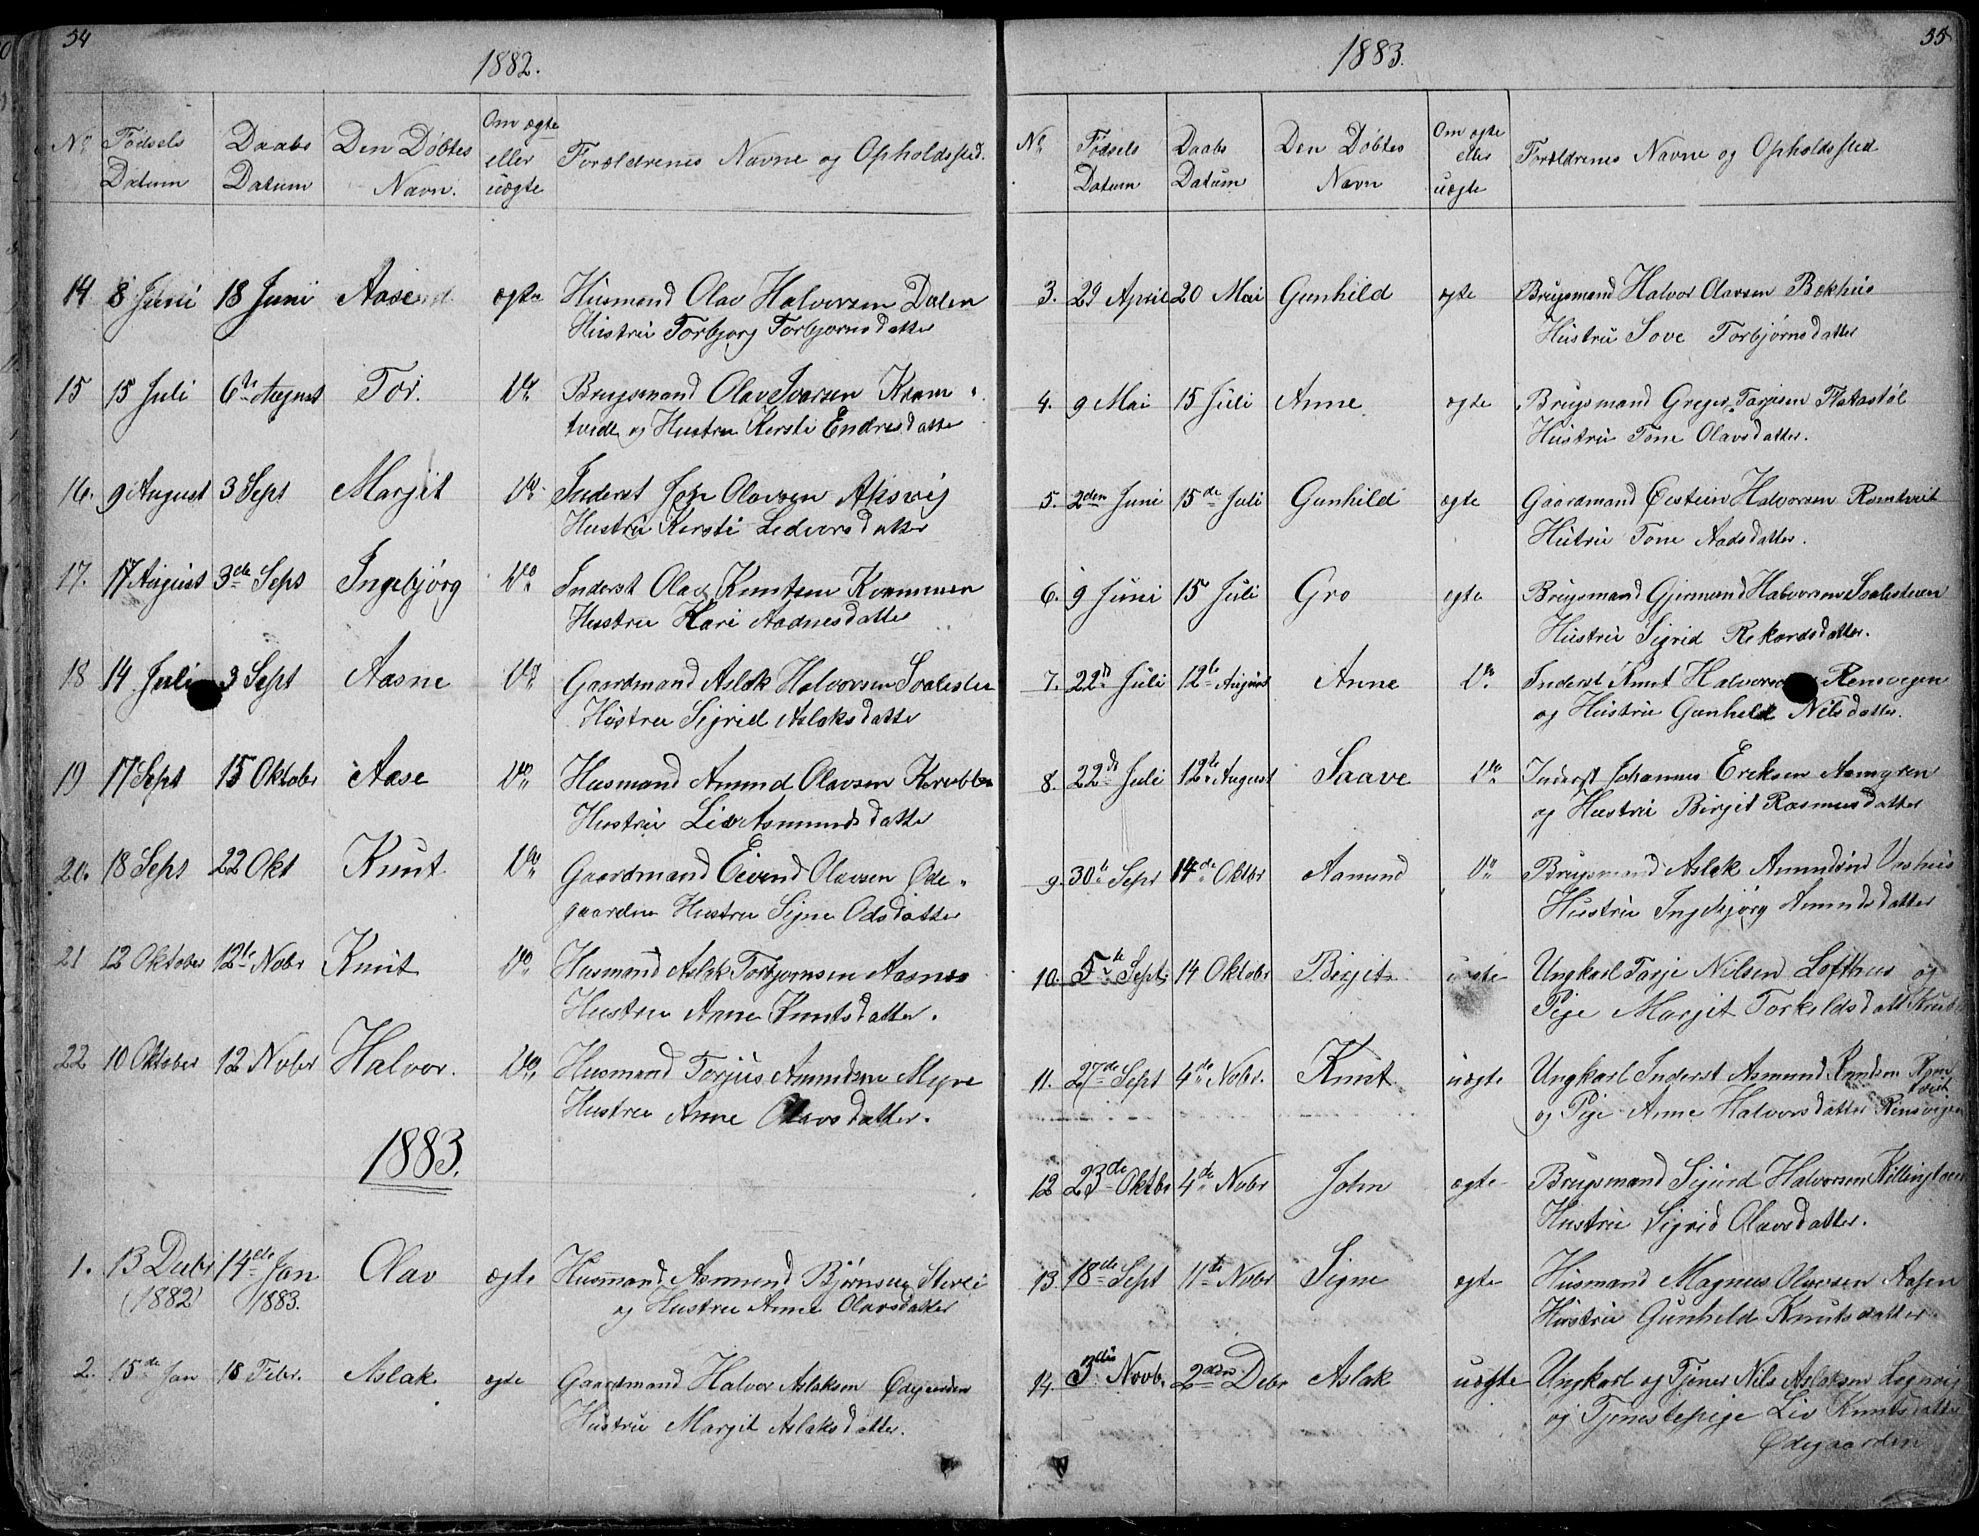 54
1882.
No Fødsels Datum Daabs Datum Den Døbtes Navn. Om ægte eller uægte Forældrenes Navne og Opholdssted.
14 8 Juni 18 Juni Aasend ægte Husmand Olav Halvorsen Dalen
Hustru Torbjorg Torbjornsdatter
15 15 Juli 6te August Tor. Do Brugsmand Olav Ivarsen Kram-
tvede og Hustru Kersti Endresdatte
16. 9 August 3 Sept Margit Do Inderst Jon Olavsen Aksvig
Hustru Kersti Ledvorsdatter
17. 17 August 3de Sept Ingebjørg Do Inderst Olav Knutsen Kvammen
Hustru Kari Aadnesdatter
18 14 Juli 3 Sept Aasne Do Gaardmand Aslak Halvorsen
Hustru Sigrid Aslaksdatter
19 17 Sept 15 Oktobr Aase Do Husmand Amund Olavsen
Hustru Liv Asmundsdatte
20. 18 Sept 22 Okt Knut Do Gaardmand Eivend Olavsen Øde-
gaarden Hustru Signe Odsdatter
21 12 Oktober 12te Nobr Knut Do Husmand Aslak Torbjornsen Aasnes
Hustru Anne Knutsdatter.
22 10 Oktober 12 Nobr Halvor. Do Husmand Torjus Amundsen Myre
Hustru Anne Olavsdatter.
1883.
1. 13 Debr (1882) 14de Jan 1883. Olav ægte Husmand Asmund Bjørnsen
og Hustru Anne Olavsdatter
2. 15de Jan 18 Febr. Aslak ægte Gaardmand Halvor Aslaksen Ødegaarden
Hustru Margit Aslaksdatter.
55
1883.
No Fødsels Datum Daabs Datum Den Døbtes Navn Om ægte eller uægte Forældrenes Navne og Opholdssted
3. 29 April 20 Mai Gunhild ægte Brugsmand Halvor Olavsen Bekhus
Hustru Sove Torbjørnsdatter
4. 9 Mai 15 Juli Anne ægte Brugsmand Greger Tarjesen Flatastøl
Hustru Tone Olavsdatter.
5. 2den Juni 15de Juli Gunhild ægte Gaardmand Eistein Halvorsen Romtveit
Hutru Tone Aadsdatter.
6. 9 Juni 15 Juli Gro ægte Brugsmand Gjermund Halvorsen
Hustru Sigrid Rekordsdatter.
7. 22de Juli 12te August Anne Do Inderst Knut Halvorsen Rensvegen
og Hustru Gunheld Nilsdatter.
8. 22de Juli 12te August Saave Do Inderst Johannes Eriksen
og Hustru Birgit Rasmusdatter
9. 30te Sept 14de Oktbr Aamund Do Brugsmand Aslak Amundsen
Hustru Ingebjørg Amundsdatter
10. 5te Sept. 14 Oktobr Birgit uægte Ungkarl Tarje Nilsen Lofthus og
Pige Margit Torkeldsdatt
11. 27de Sept 4de Nobr. Knut uægte Ungkarl Inderst Asmund Knutsen Romtveit
og Pige Anne Halvorsdatter Rinsvegen
12 23de Oktbr 4de Nobr John ægte Brugsmand Sigurd Halvorsen
Hustru Sigrid Olavsdatter.
13. 18de Sept 11te Nobr Signe ægte Husmand Magnus Olavsen Aasen
Hustru Gunheld Knutsdatter.
14. 3die Novb. 2den Debr Aslak uægte Ungkarl og Tjener Nils Aslaksen
og Tjenestepige Liv Knutsdatter
Ødegaarden